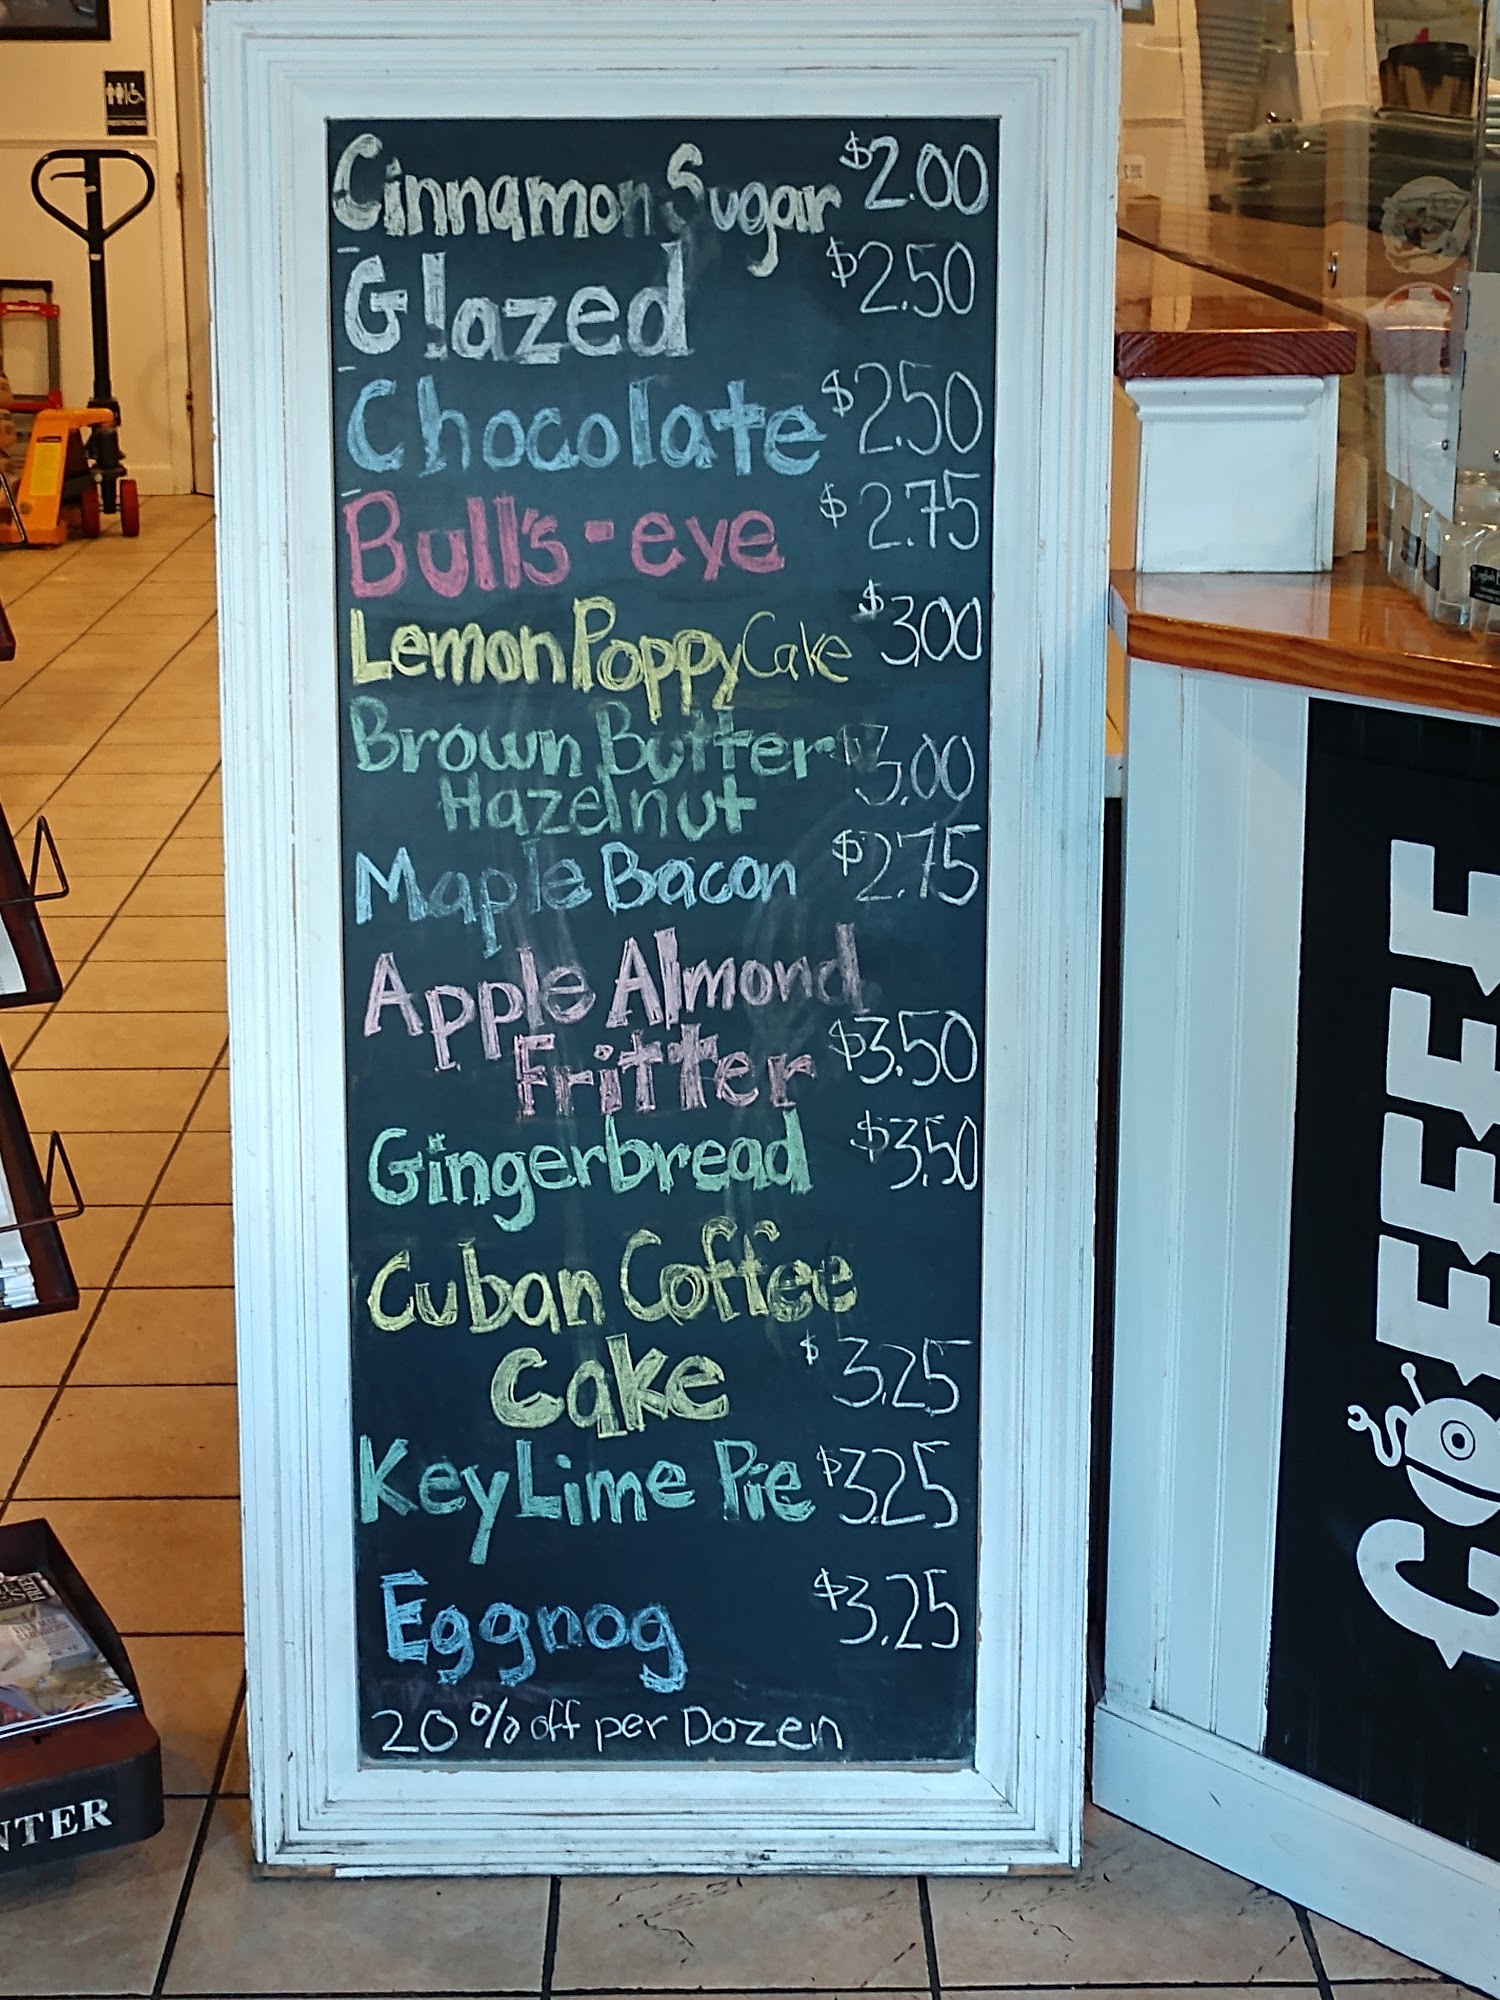 Cinnamon Sugar $2.00
Glazed $2.50
Chocolate $2.50
Bull's-eye $2.75
Lemon Poppy Cake $3.00
Brown Butter $3.00
Hazelnut
Maple Bacon $2.75
Apple Almond
Fritter $3.50
Gingerbread $3.50
Cuban Coffee
Cake $3.25
Key Lime Pie $3.25
Eggnog $3.25
20% off per Dozen
COFFEE
NTER